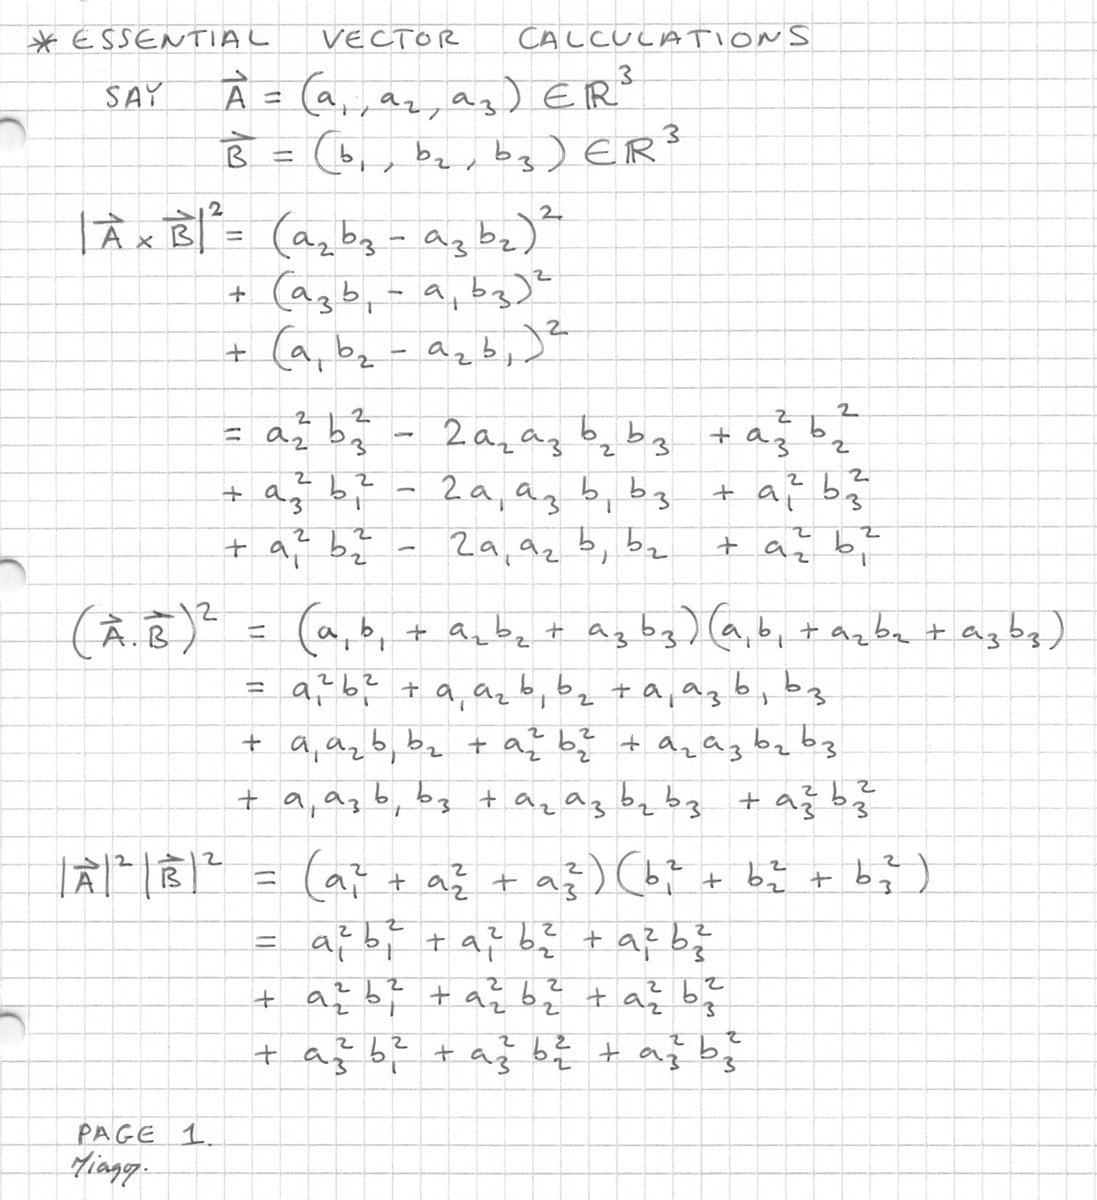 * ESSENTIAL VECTOR CALCULATIONS
SAY A⃗ = (a₁, a₂, a₃) ∈ ℝ³
B⃗ = (b₁, b₂, b₃) ∈ ℝ³
|A⃗ × B⃗|² = (a₂b₃ − a₃b₂)²
+ (a₃b₁ − a₁b₃)²
+ (a₁b₂ − a₂b₁)²
= a₂² b₃² − 2a₂a₃ b₂b₃ + a₃² b₂²
+ a₃² b₁² − 2a₁a₃ b₁b₃ + a₁² b₃²
+ a₁² b₂² − 2a₁a₂ b₁b₂ + a₂² b₁²
(A⃗.B⃗)² = (a₁b₁ + a₂b₂ + a₃b₃)(a₁b₁ + a₂b₂ + a₃b₃)
= a₁²b₁² + a₁a₂b₁b₂ + a₁a₃b₁b₃
+ a₁a₂b₁b₂ + a₂²b₂² + a₂a₃b₂b₃
+ a₁a₃b₁b₃ + a₂a₃b₂b₃ + a₃²b₃²
|A⃗|²|B⃗|² = (a₁² + a₂² + a₃²)(b₁² + b₂² + b₃²)
= a₁²b₁² + a₁²b₂² + a₁²b₃²
+ a₂²b₁² + a₂²b₂² + a₂²b₃²
+ a₃²b₁² + a₃²b₂² + a₃²b₃²
PAGE 1.